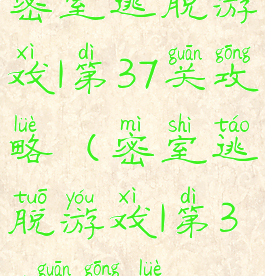 密室逃脱游
xì dì guān gōng
戏1第37关攻
lüè mì shì táo
略（密室逃
tuō yóu xì dì
脱游戏1第3
guān gōng lüè